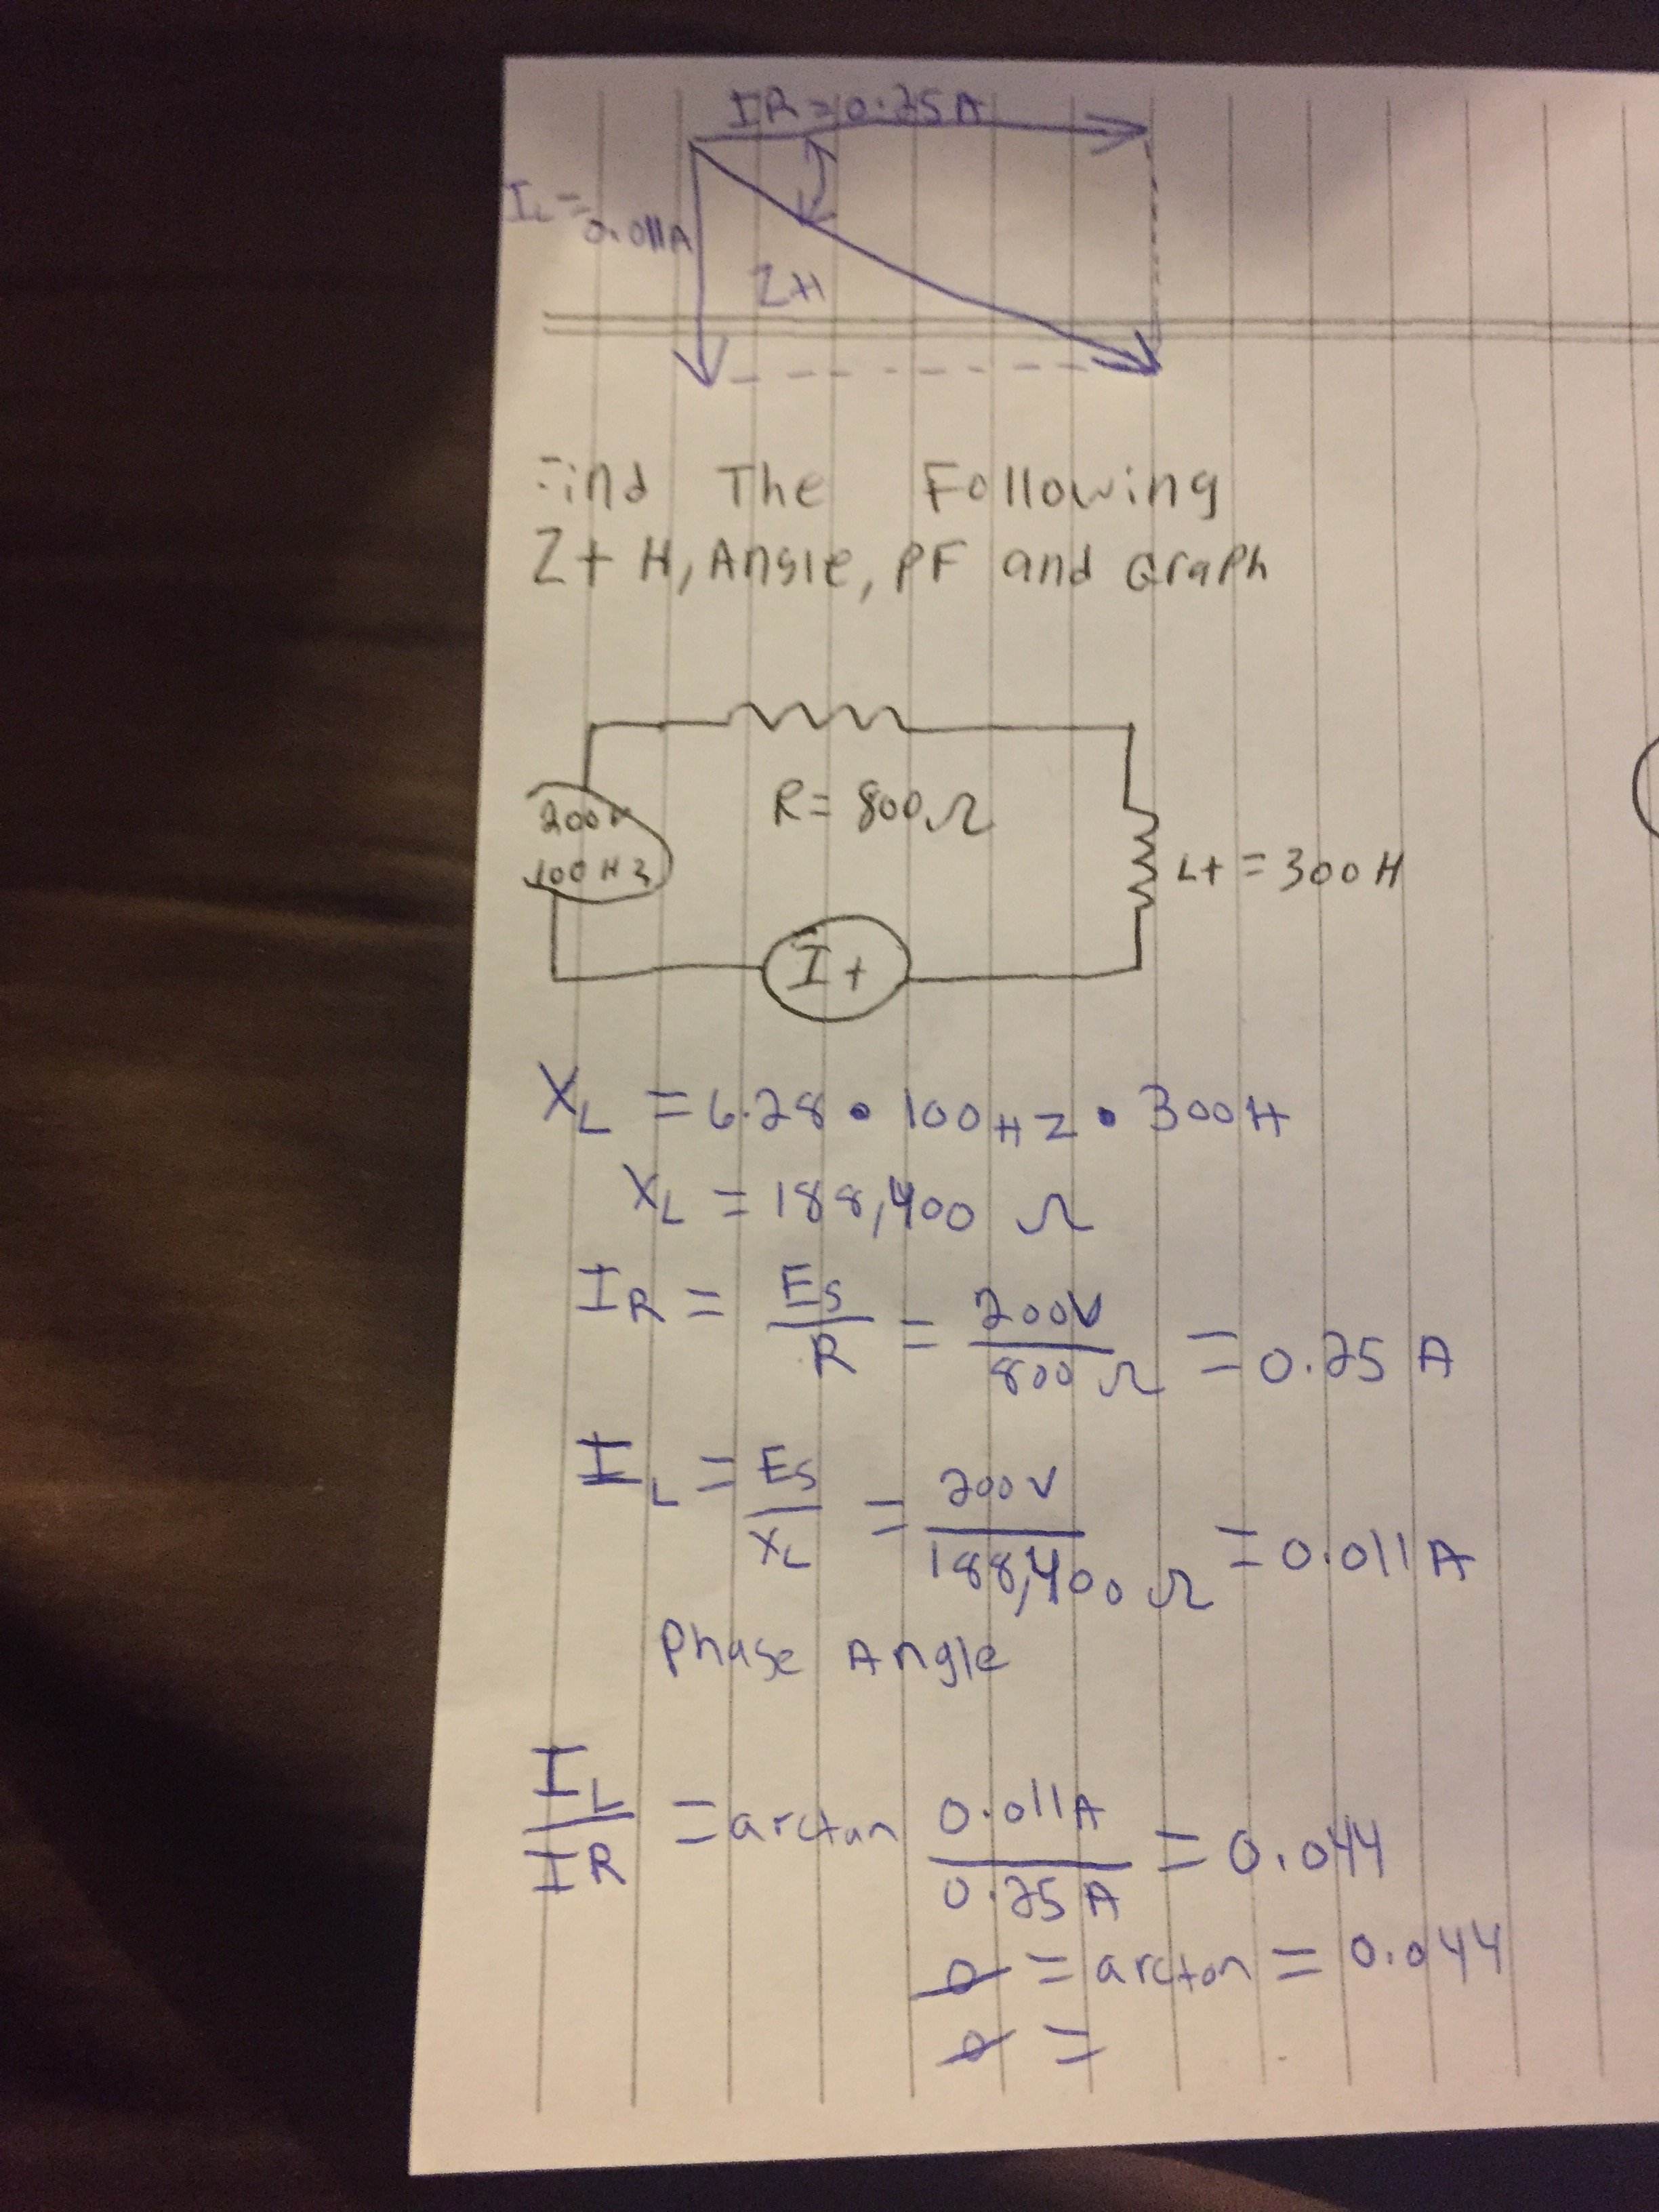 IR = 0.25A
IL =
0.011A
ZH
Find The Following
Zt H, Angle, PF and Graph
200V
100 Hz
R = 800Ω
Lt = 300 H
It
XL = 6.28 • 100Hz • 300H
XL = 188,400 Ω
IR = Es/R = 200V/800Ω = 0.25 A
IL = Es/XL = 200V/188,400Ω = 0.011A
Phase Angle
IL/IR = arctan 0.011A/0.25A = 0.044
θ = arctan = 0.044
θ =